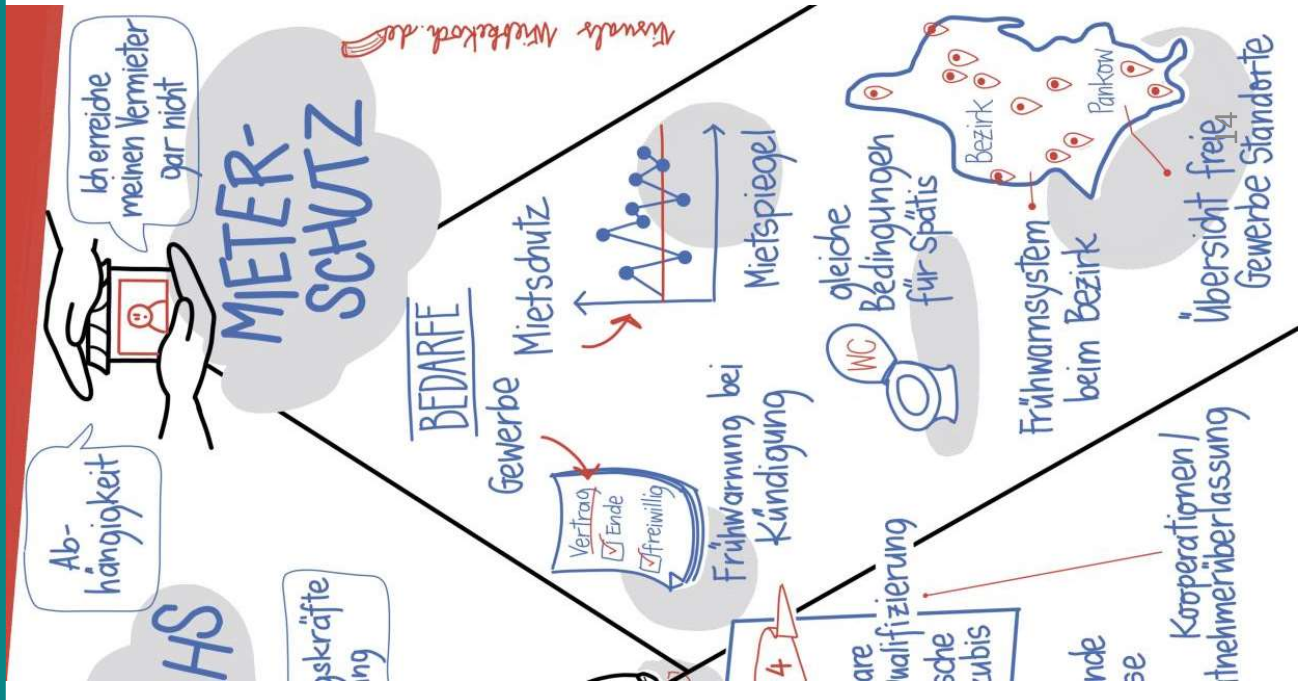 Visuals Wiebkekoch.de
Ich erreiche
meinen Vermieter
gar nicht
MIETER-
SCHUTZ
Ab-
hängigkeit
HS
gskräfte
ng
BEDARFE
Gewerbe Mietschutz
Vertrag
Ende
freiwillig
Frühwarnung bei
Kündigung
Mietspiegel
gleiche
Bedingungen
für Spätis
WC
Bezirk
Pankow
Frühwarnsystem
beim Bezirk
Übersicht freie
Gewerbe Standorte
14
4
are
ualifizierung
sche
zubis
nde
se
Kooperationen/
tnehmerüberlassung